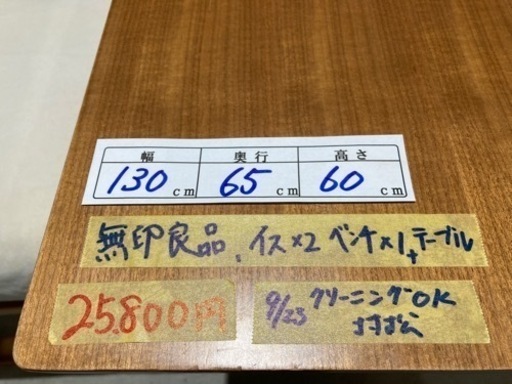 幅 奥行 高さ
130cm 65cm 60cm
無印良品、イス×2 ベンチ×1+テーブル
25.800円
9/23 クリーニングOK